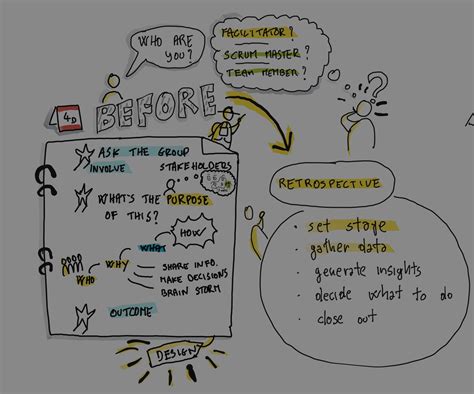 WHO ARE
YOU?
FACILITATOR?
SCRUM MASTER?
TEAM MEMBER?
?
4D
BEFORE
ASK THE GROUP
INVOLVE STAKEHOLDERS
WHAT'S THE PURPOSE
OF THIS?
HOW
WHAT
WHO
WHY
SHARE INFO.
MAKE DECISIONS
BRAIN STORM
OUTCOME
DESIGN
RETROSPECTIVE
· set stage
· gather data
· generate insights
· decide what to do
· close out